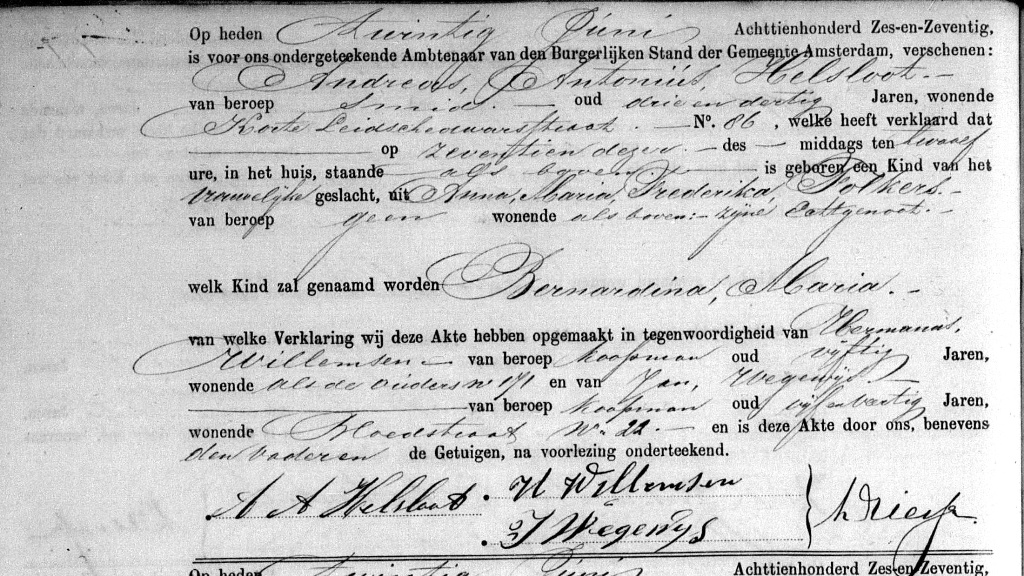 Op heden Twintig Juni Achttienhonderd Zes-en-Zeventig,
is voor ons ondergeteekende Ambtenaar van den Burgerlijken Stand der Gemeente Amsterdam, verschenen:
Andreas, Antonius, Helsloot. —
van beroep Smid. — oud drie en dertig Jaren, wonende
Korte Leidschedwarsstraat. — No. 86, welke heeft verklaard dat
— op zeventien dezer. — des — middags ten twaalf
ure, in het huis, staande als boven — is geboren een Kind van het
vrouwelijk geslacht, uit Anna, Maria, Frederika, Polkers. —
van beroep geen wonende als boven:— zijne Echtgenoot. —
welk Kind zal genaamd worden Bernardina, Maria. —
van welke Verklaring wij deze Akte hebben opgemaakt in tegenwoordigheid van Hermanus,
Willemsen — van beroep koopman oud vijftig Jaren,
wonende als de ouders no 171 en van Jan, Wegewijs —
— van beroep koopman oud vijf en veertig Jaren,
wonende Bloedstraat No 22. — en is deze Akte door ons, benevens
den vader en de Getuigen, na voorlezing onderteekend.
A A Helsloot H Willemsen
J Wegewijs
Op heden Twintig Juni Achttienhonderd Zes-en-Zeventig,